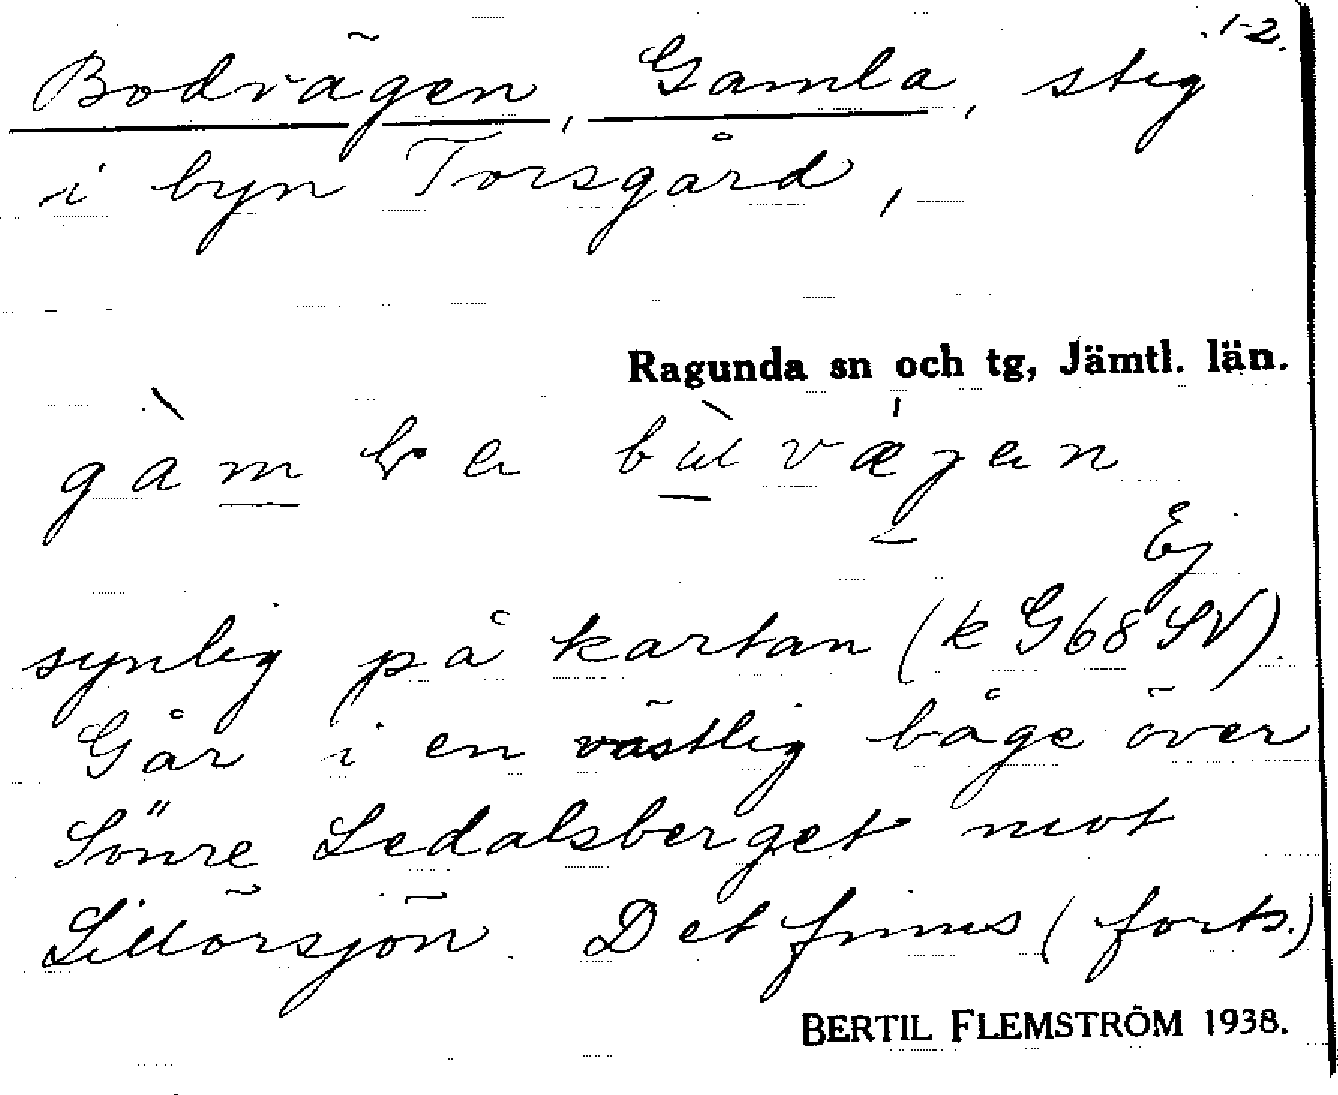 1-2.
Bodvägen, Gamla, stig
i byn Torsgård,
Ragunda sn och tg, Jämtl. län.
Ej
synlig på kartan (k G68 SV).
Går i en västlig båge över
Sönre Ledalsberget mot
Lillörsjön. Det finns (forts.)
BERTIL FLEMSTRÖM 1938.